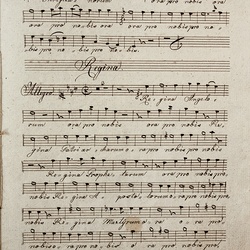 ora pro nobis ora ora pro nobis pro no
bis pro no bis pro no bis.
Regina
Allegro
Re gina Angelo,
rum ora pro nobis ora pro nobis Re
gina Patriar, charum ora pro nobis pro nobis,
Re gina Prophe tarum ora pro nobis pro
nobis Regina A, posto, lorum, ora pro nobis pro
nobis Re gina Martyrum o ra, o, ra pro,
nobis o, ra pro no, bis o ra pro nobis pro,